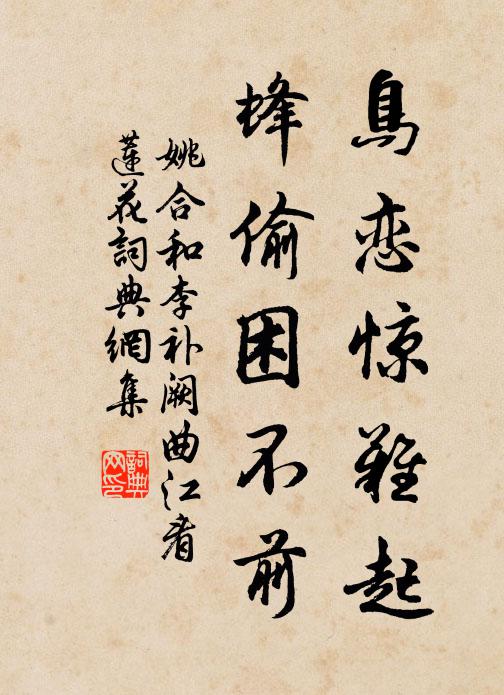 鳥恋惊難起
蜂偷困不前
姚合和李补阙曲江看
蓮花詞典網集
詞典
网印